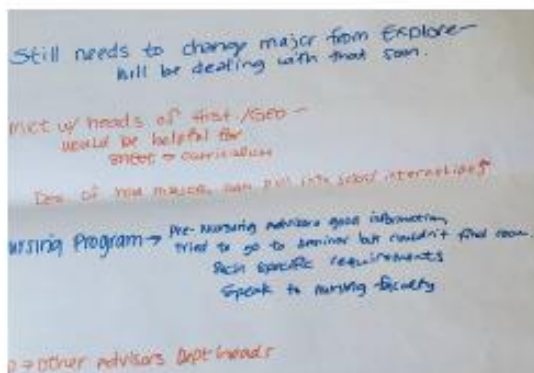 Still needs to change major from Explore-
will be dealing with that soon.
met w/ heads of Hist./Geo -
would be helpful for
sheet → curriculum
of how major can pull into jobs/internships
ursing Program → Pre-Nursing Advisors good information,
tried to go to seminar but couldn't find room.
Such specific requirements
Speak to nursing faculty
→ other Advisors Dept heads